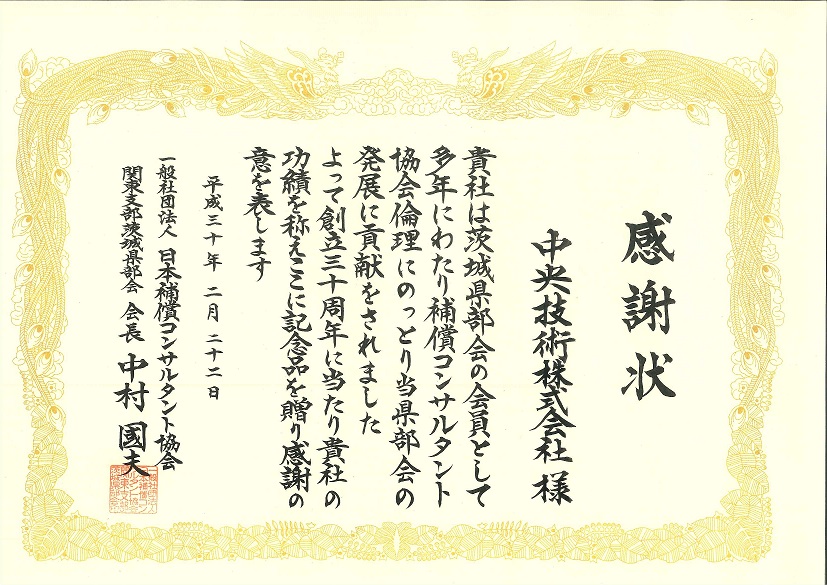 感謝状
中央技術株式会社 様
貴社は茨城県部会の会員として
多年にわたり補償コンサルタント
協会倫理にのっとり当県部会の
発展に貢献をされました
よって創立三十周年に当たり貴社の
功績を称えここに記念品を贈り感謝の
意を表します
平成三十年 二月 二十二日
一般社団法人 日本補償コンサルタント協会
関東支部茨城県部会 会長 中村 國夫